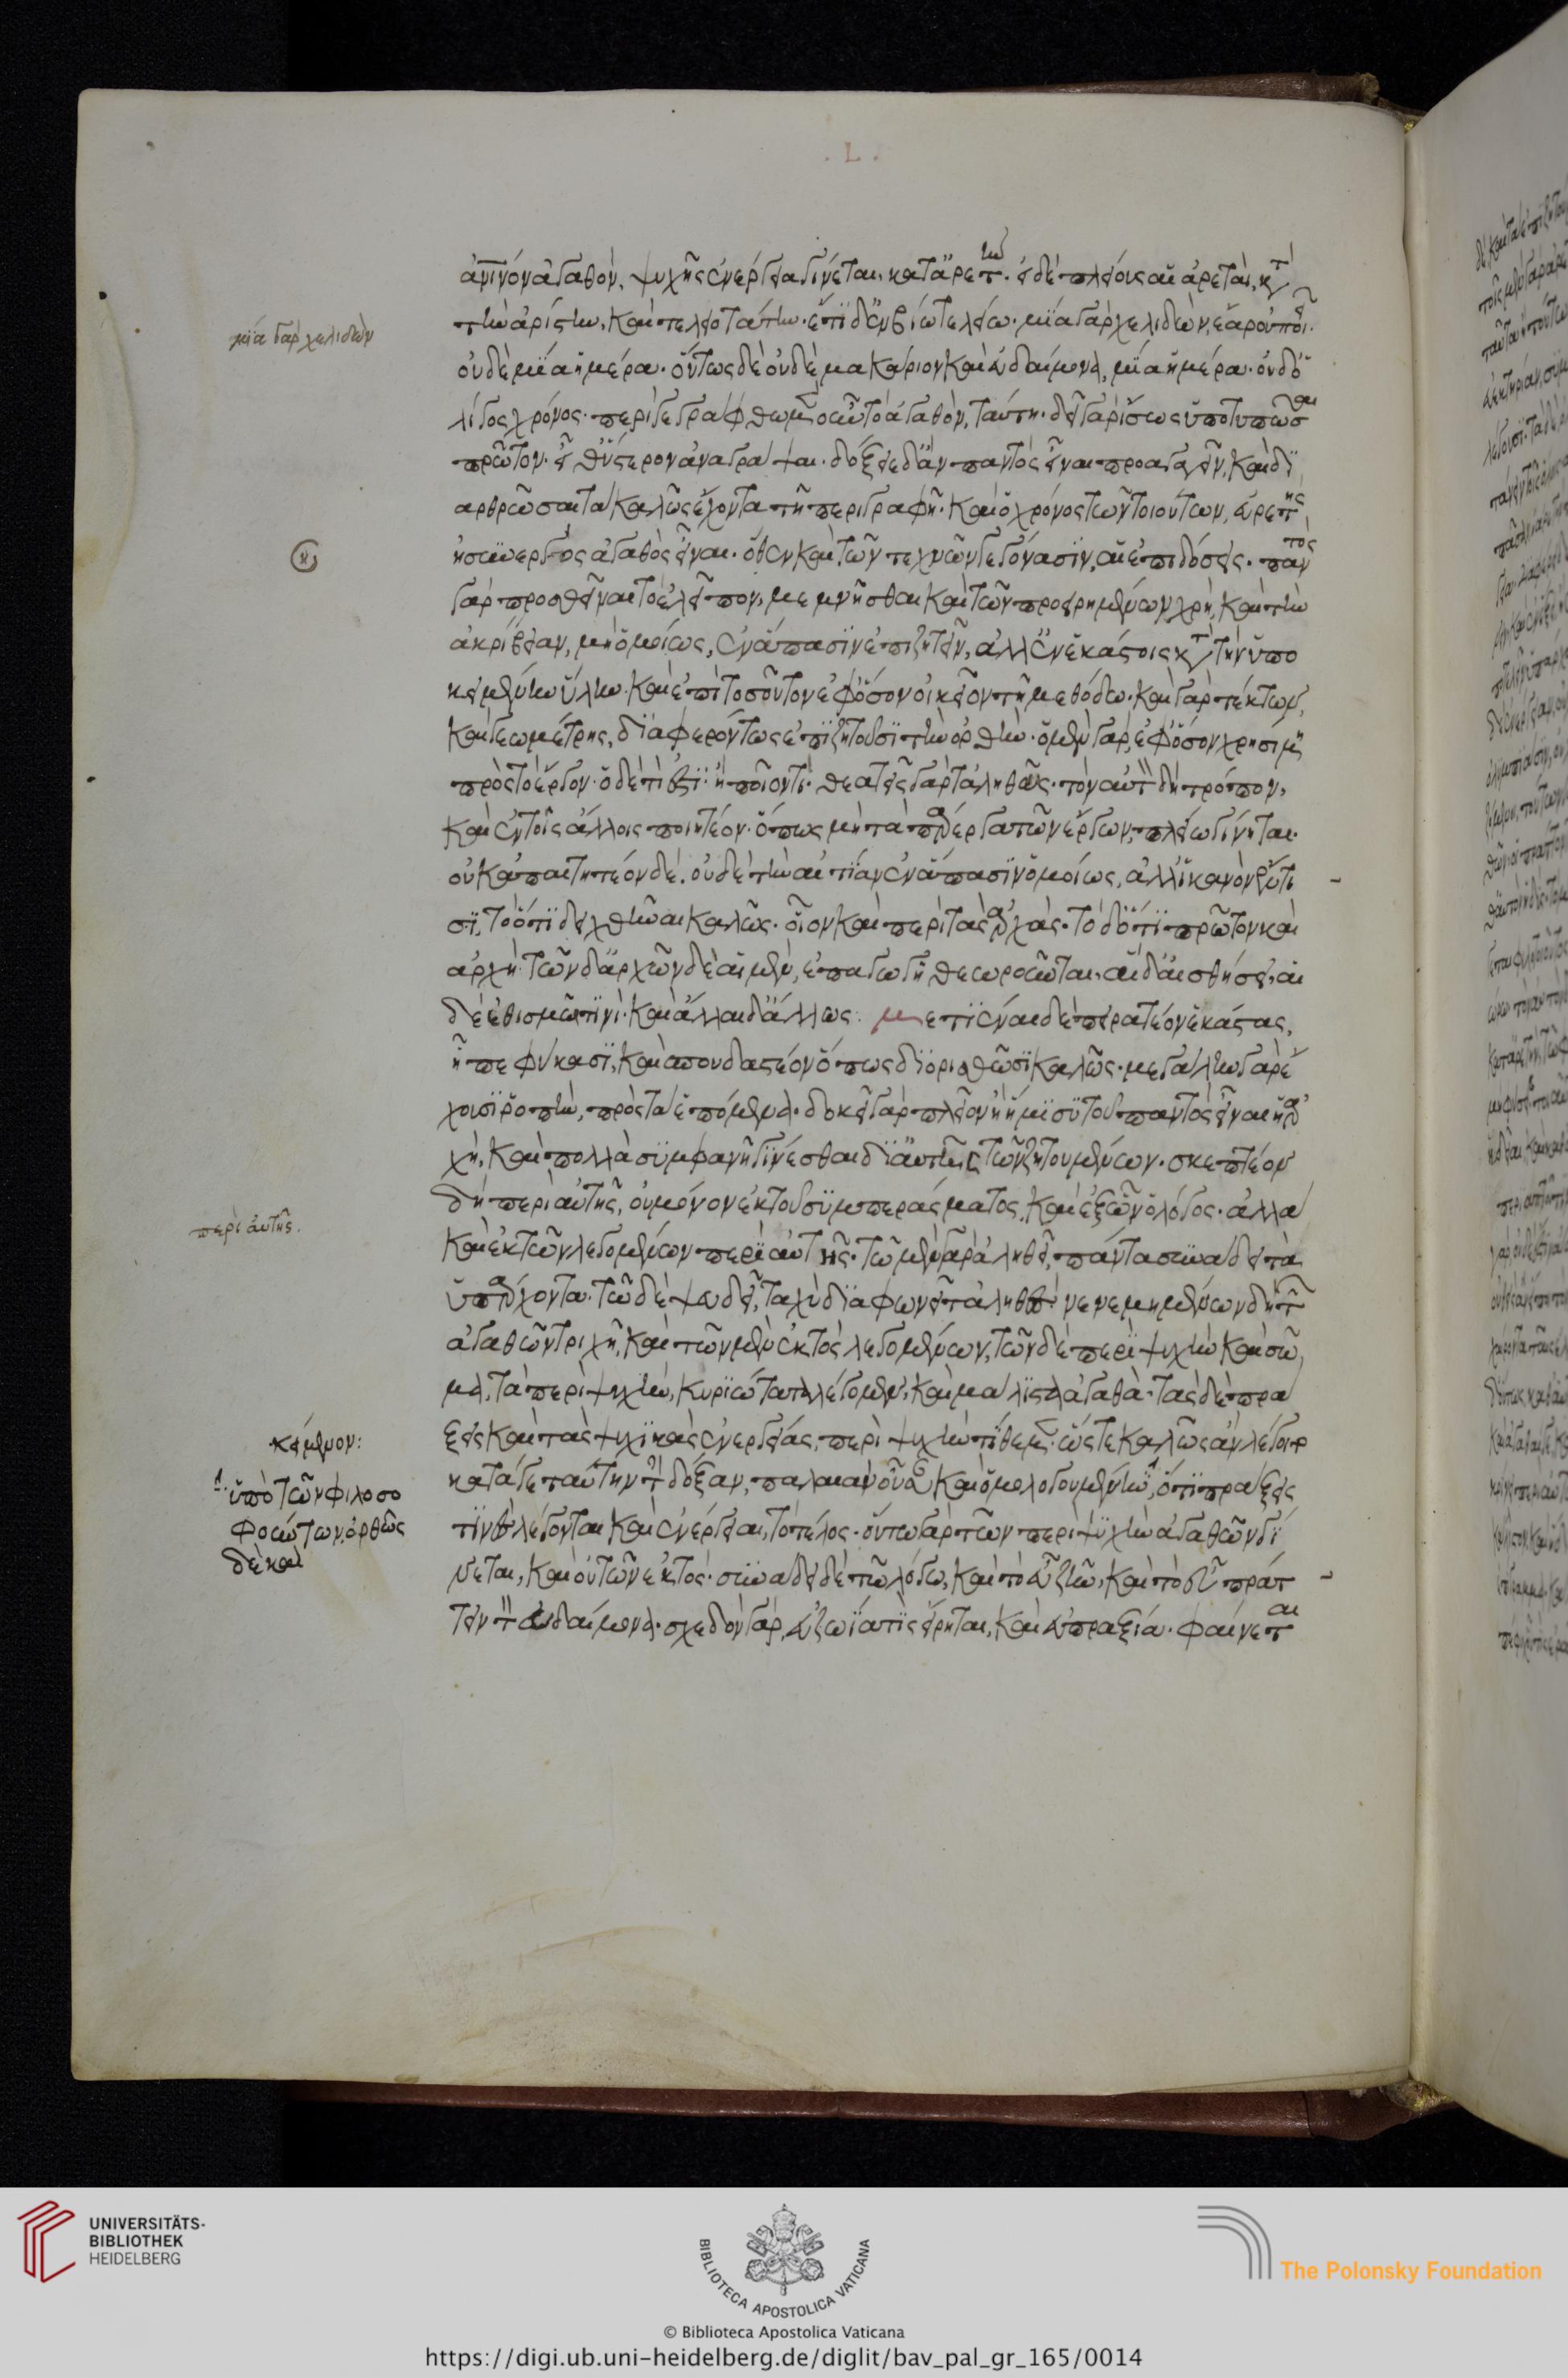 . L .
ἀνθρώπινον ἀγαθὸν, ψυχῆς ἐνέργεια γίνεται, κατ' ἀρετὴν. εἰ δὲ πλείους αἱ ἀρεταὶ, κατὰ
τὴν ἀρίστην, καὶ τελειοτάτην. ἔτι δ' ἐν βίω τελείω. μία γὰρ χελιδὼν, ἔαρ οὐ ποιεῖ.
οὐδὲ μία ἡμέρα. οὕτως δὲ οὐδὲ μακάριον καὶ εὐδαίμονα, μία ἡμέρα. οὐδ' ὀ
λίγος χρόνος. περιγεγράφθω μὲν οὖν τὸ ἀγαθὸν, ταύτη. δεῖ γὰρ ἴσως ὑποτυπῶσαι
πρῶτον. εἶθ' ὕστερον ἀναγράψαι. δόξειε δ' ἂν παντὸς εἶναι προαγαγεῖν, καὶ δι
αρθρῶσαι τὰ καλῶς ἔχοντα τῆ περιγραφῆ. καὶ ὁ χρόνος τῶν τοιούτων, εὑρετὴς
ἢ συνεργὸς ἀγαθὸς εἶναι. ὅθεν καὶ τῶν τεχνῶν γεγόνασιν, αἱ ἐπιδόσεις. παντὸς
γὰρ προσθεῖναι τὸ ἐλλεῖπον, μεμνῆσθαι καὶ τῶν προειρημένων χρὴ, καὶ τὴν
ἀκρίβειαν, μὴ ὁμοίως, ἐν ἅπασιν ἐπιζητεῖν, ἀλλ' ἐν ἑκάστοις κατὰ τὴν ὑπο
κειμένην ὕλην. καὶ ἐπὶ τοσοῦτον ἐφ' ὅσον οἰκεῖον τῆ μεθόδω. καὶ γὰρ τέκτων,
καὶ γεωμέτρης, διαφερόντως ἐπιζητοῦσι τὴν ὀρθὴν. ὁ μὲν γὰρ, ἐφ' ὅσον χρησίμη
πρὸς τὸ ἔργον. ὁ δὲ τί ἐστι. ἢ ποῖόν τι. θεατὴς γὰρ τἀληθοῦς. τὸν αὐτὸν δὴ τρόπον,
καὶ ἐν τοῖς ἄλλοις ποιητέον. ὅπως μὴ τὰ πάρεργα τῶν ἔργων, πλείω γίνηται.
οὐκ ἀπαιτητέον δὲ. οὐδὲ τὴν αἰτίαν ἐν ἅπασιν ὁμοίως, ἀλλ' ἱκανὸν ἔν τι
σι, τὸ ὅτι δειχθῆναι καλῶς. οἷον καὶ περὶ τὰς ἀρχὰς. τὸ δ' ὅτι πρῶτον καὶ
ἀρχὴ. τῶν δ' ἀρχῶν δὲ αἱ μὲν, ἐπαγωγῆ θεωροῦνται, αἱ δ' αἰσθήσει, αἱ
δὲ ἐθισμῶ τινὶ. καὶ ἄλλαι δ' ἄλλως. μετιέναι δὲ πειρατέον ἑκάστας,
ἧ πεφύκασι, καὶ σπουδαστέον ὅπως διορισθῶσι καλῶς. μεγάλην γὰρ ἔ
χουσι ῥοπὴν, πρὸς τὰ ἑπόμενα. δοκεῖ γὰρ πλεῖον ἢ ἥμισυ τοῦ παντὸς εἶναι ἡ ἀρ
χὴ, καὶ πολλὰ συμφανῆ γίνεσθαι δι' αὐτῆς τῶν ζητουμένων. σκεπτέον
δὴ περὶ αὐτῆς, οὐ μόνον ἐκ τοῦ συμπεράσματος, καὶ ἐξ ὧν ὁ λόγος. ἀλλὰ
καὶ ἐκ τῶν λεγομένων περὶ αὐτῆς. τῶ μὲν γὰρ ἀληθεῖ, πάντα συνάδει τὰ
ὑπάρχοντα. τῶ δὲ ψευδεῖ, ταχὺ διαφωνεῖ τἀληθές. νενεμημένων δὴ τῶν
ἀγαθῶν τριχῆ, καὶ τῶν μὲν ἐκτὸς λεγομένων, τῶν δὲ περὶ ψυχὴν καὶ σῶ
μα, τὰ περὶ ψυχὴν, κυριώτατα λέγομεν, καὶ μάλιστα ἀγαθὰ. τὰς δὲ πρά
ξεις καὶ τὰς ψυχικὰς ἐνεργείας, περὶ ψυχὴν τίθεμεν. ὥστε καλῶς ἂν λέγοιτο
κατά γε ταύτην τὴν δόξαν, παλαιὰν οὖσαν καὶ ὁμολογουμένην, ὅτι πράξεις
τινὲς λέγονται καὶ ἐνέργειαι, τὸ τέλος. οὕτω γὰρ τῶν περὶ ψυχὴν ἀγαθῶν γί
νεται, καὶ οὐ τῶν ἐκτὸς. συνάδει δὲ τῶ λόγω, καὶ τὸ εὖ ζῆν, καὶ τὸ εὖ πράτ
τειν τὸν εὐδαίμονα. σχεδὸν γὰρ, εὐζωΐα τὶς εἴρηται, καὶ εὐπραξία. φαίνεται
μία γὰρ χελιδὼν
περὶ αὐτῆς.
κείμενον:
ὑπὸ τῶν φιλοσο
φούντων. ὀρθῶς
δὲ καὶ
UNIVERSITÄTS-
BIBLIOTHEK
HEIDELBERG
BIBLIOTECA APOSTOLICA VATICANA
The Polonsky Foundation
© Biblioteca Apostolica Vaticana
https://digi.ub.uni-heidelberg.de/diglit/bav_pal_gr_165/0014